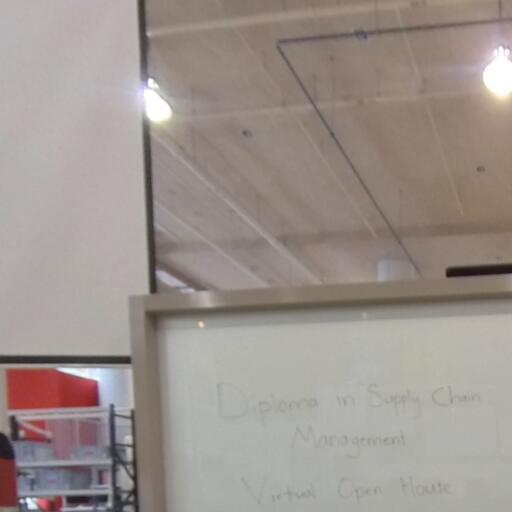 Diploma in Supply Chain
Management
Virtual Open House